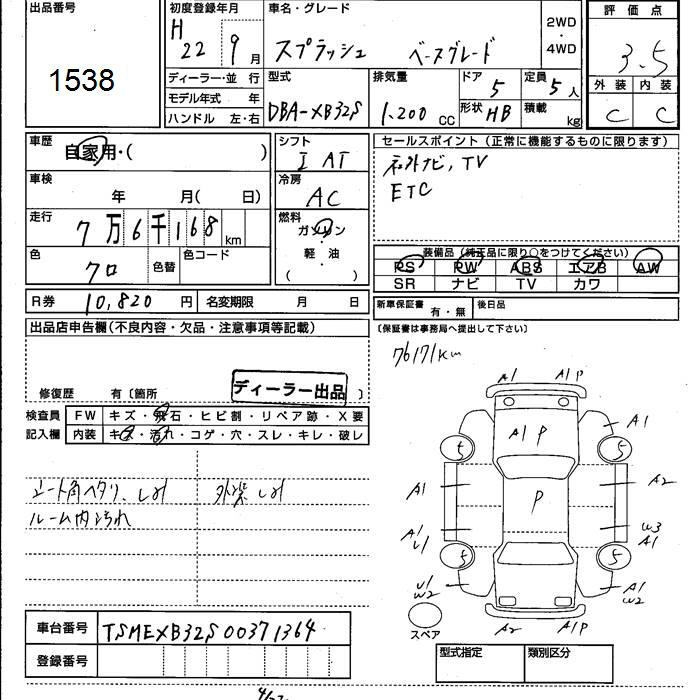 出品番号
1538
初度登録年月
H 22 9月
車名・グレード
スプラッシュ ベースグレード
2WD
・
4WD
評価点
3.5
外装 内装
C C
ディーラー・並 行
モデル年式 年
ハンドル 左・右
型式
DBA-XB32S
排気量
1,200 CC
ドア
5
定員
5人
形状 HB
積載
kg
車歴
自家用・( )
車検
年 月( 日)
走行
7万6千168km
色
クロ
色替
色コード
シフト
I AT
冷房
AC
燃料
ガソリン
・
軽 油
( )
セールスポイント(正常に機能するものに限ります)
社外ナビ, TV
ETC
装備品(純正品に限り○をつけてください)
PS PW ABS エアB AW
SR ナビ TV カワ
R券 10,820 円
名変期限 月 日
新車保証書 有・無
後日品
(保証書は事務局へ提出して下さい)
出品店申告欄(不良内容・欠品・注意事項等記載)
修復歴 有〔箇所 〕
ディーラー出品
76171km
検査員
記入欄
FW キズ・飛石・ヒビ割・リペア跡・X要
内装 キズ・汚れ・コゲ・穴・スレ・キレ・破レ
シート角ヘタリ、しみ
ルーム内汚れ
A1 A1P
A1P
A1
5 5
A1
P
A2
A1
U1
W3
A1
5 5
U1
W2
A1
W2
A2 A1P
スペア
車台番号 TSMEXB32S00371364
登録番号
型式指定 類別区分